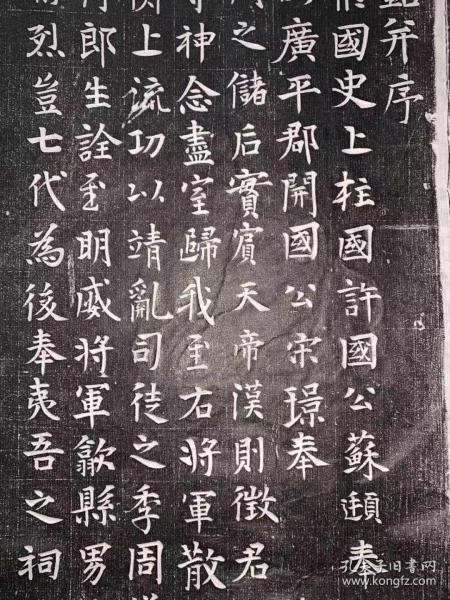 并序
國史上柱國許國公蘇頲奉
廣平郡開國公宋璟奉
之儲后實賓天帝漢則徵君
神念盡室歸我至右將軍散
上流功以靖亂司徒之季周
郎生詮至明威將軍歙縣男
烈豈七代為後奉夷吾之祠
孔夫子旧书网
www.kongfz.com